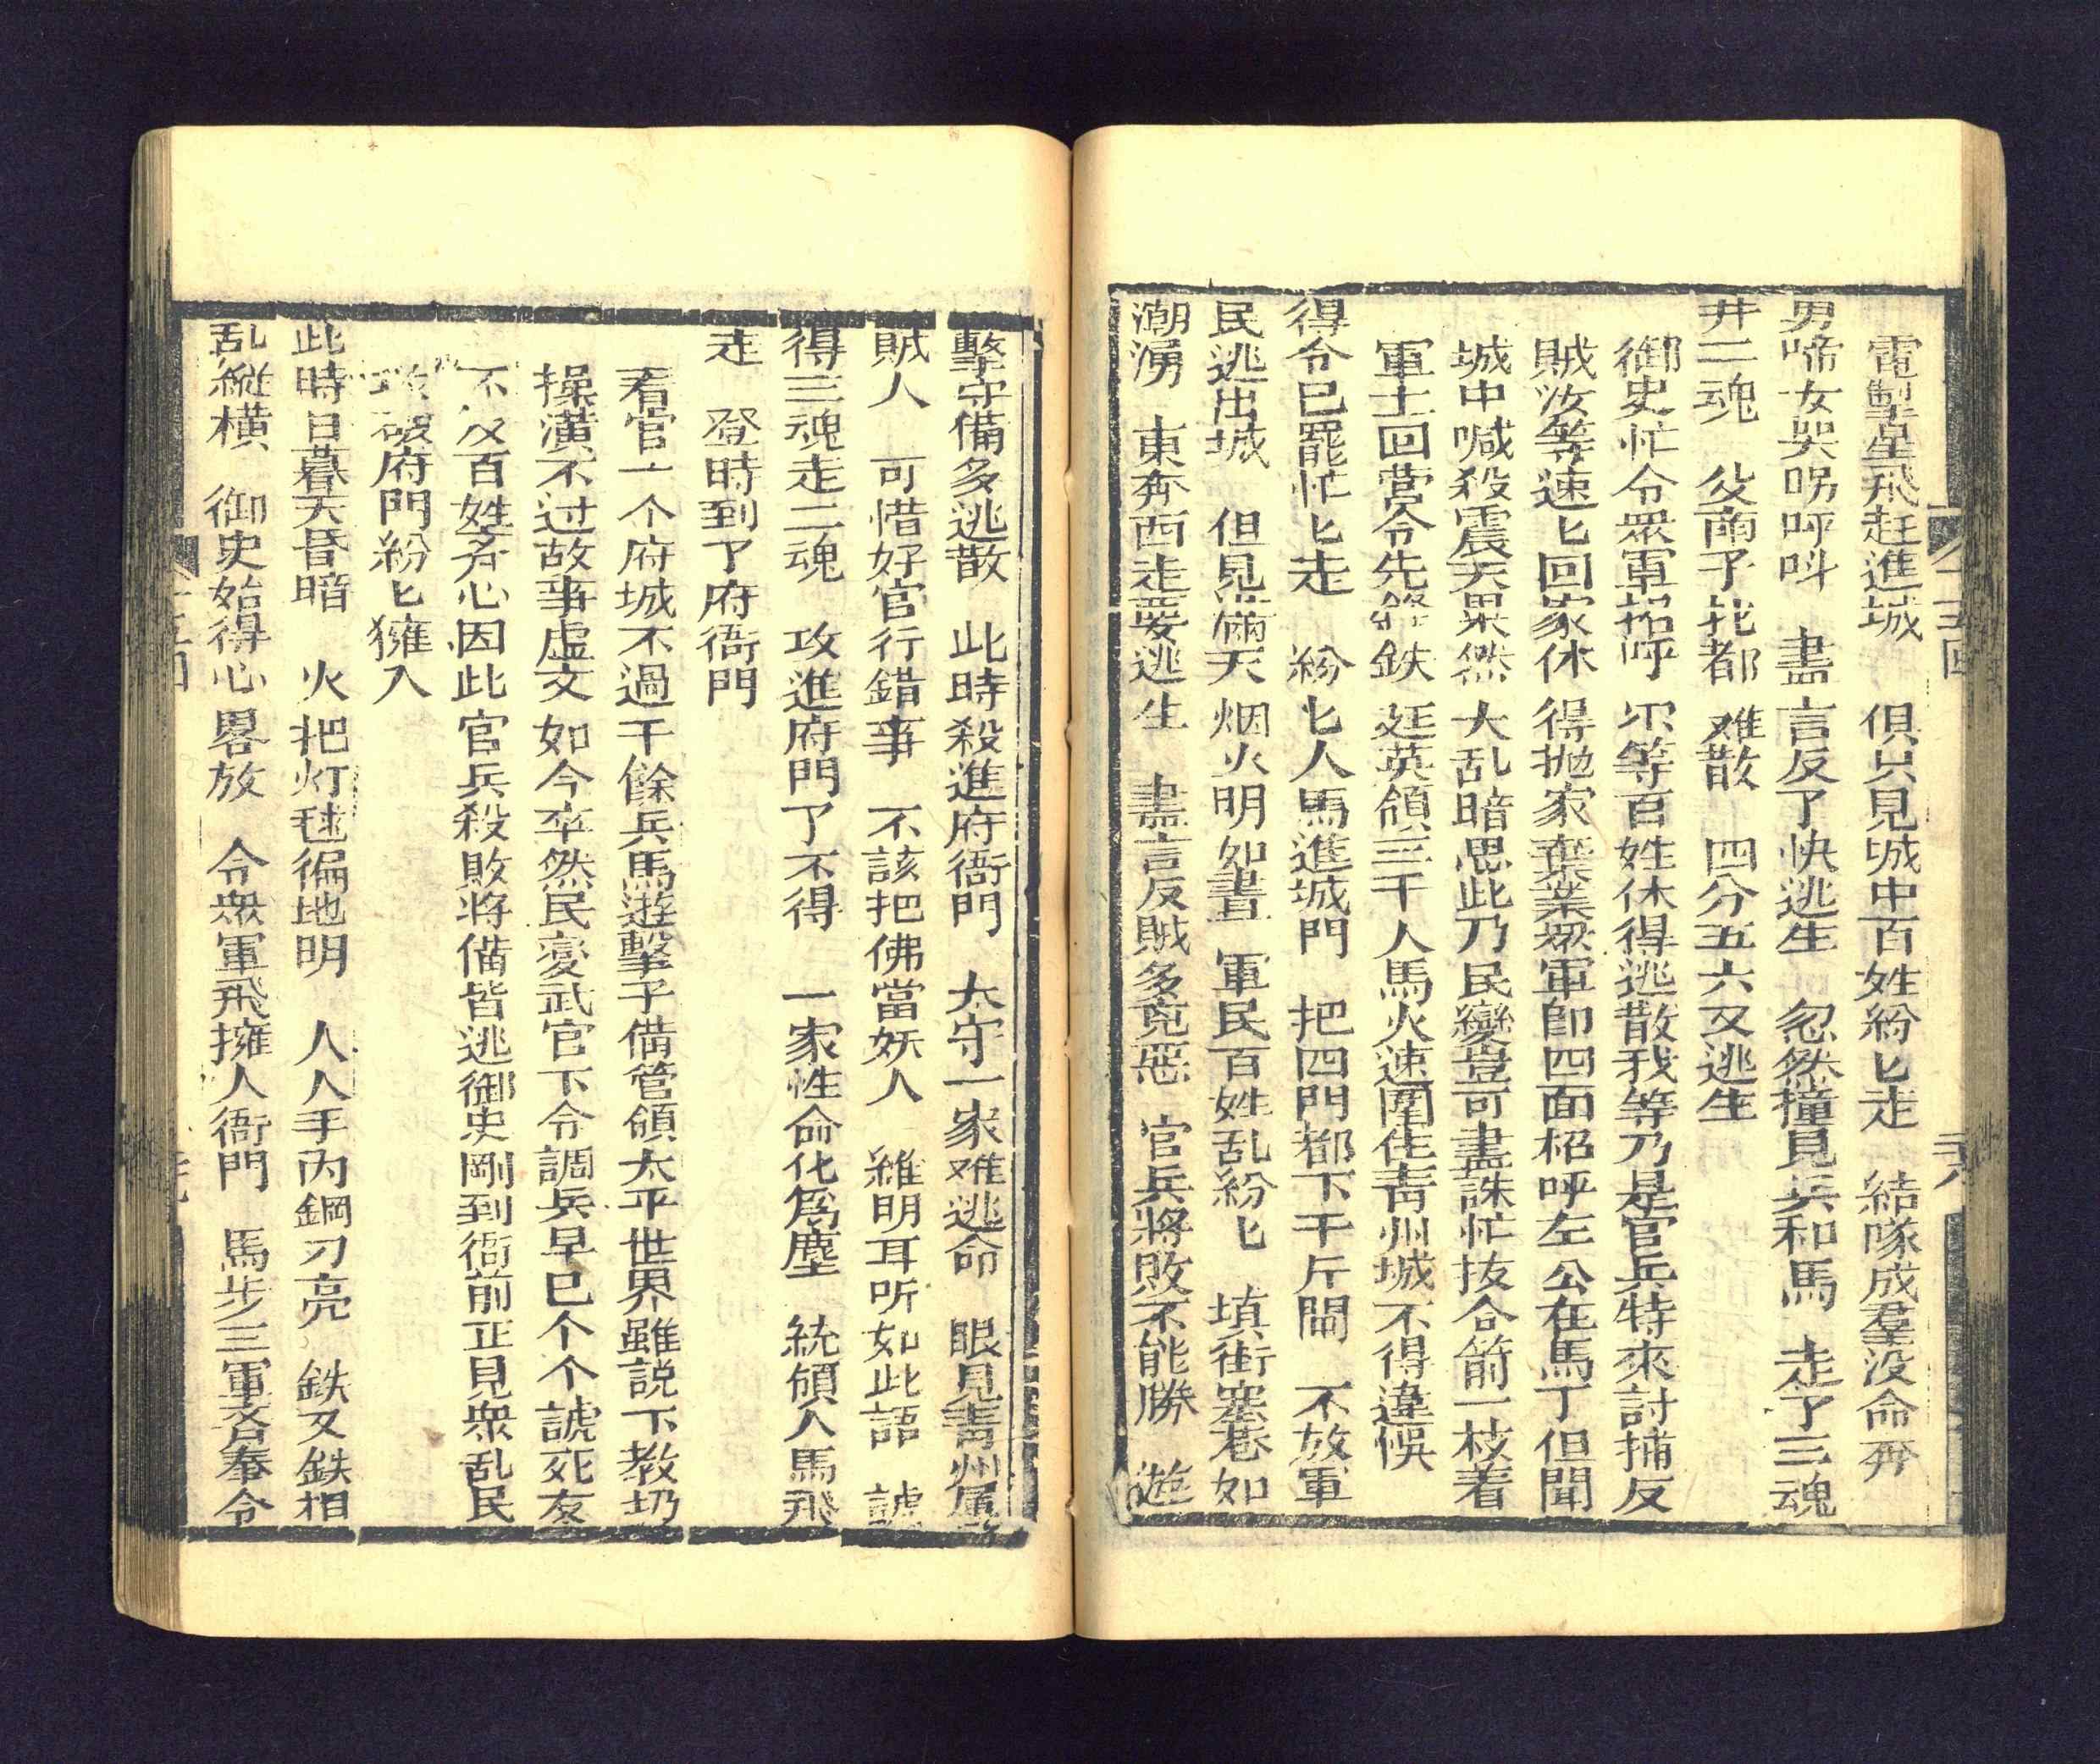 電掣星飛赶進城　俱只見城中百姓紛匕走　結隊成羣没命奔
男啼女哭呺呼呌　盡言反了快逃生　忽然撞見兵和馬　走了三魂
并二魂　父南子北都难散　四分五六又逃生
御史忙令眾軍招呼尔等百姓休得逃散我等乃是官兵特來討捕反
賊汝等速匕回家休得抛家棄業眾軍即四面招呼左公在馬丁但聞
城中喊殺震天果然大乱暗思此乃民變豈可盡誅忙抜令箭一枝着
軍士回营令先鋒鉄廷英領三千人馬火速圍住青州城不得違悞
得令已罷忙匕走　紛匕人馬進城門　把四門都下千斤閘　不放軍
民逃出城　但見滿天烟火明如晝　軍民百姓乱紛匕　填街塞巷如
潮湧　東奔西走要逃生　盡言反賊多兇惡　官兵將敗不能勝　遊
擊守備多逃散　此時殺進府衙門　太守一家难逃命　眼見青州属
賊人　可惜好官行錯事　不該把佛當妖人　維明耳听如此語　諕
得三魂走二魂　攻進府門了不得　一家性命化爲塵　統領人馬飛
走　登時到了府衙門
看官一个府城不過千餘兵馬遊擊子備管領太平世界雖説下教塲
操演不过故事虚文如今卒然民变武官下令調兵早已个个諕死友
不及百姓齐心因此官兵殺敗将備皆逃御史剛到衙前正見衆乱民
攻破府門紛匕擁入
此時日暮天昏暗　火把灯毬徧地明　人人手内鋼刀亮　鉄叉鉄相
乱縱横　御史始得心畧放　令眾軍飛擁人衙門　馬步三軍齐奉令